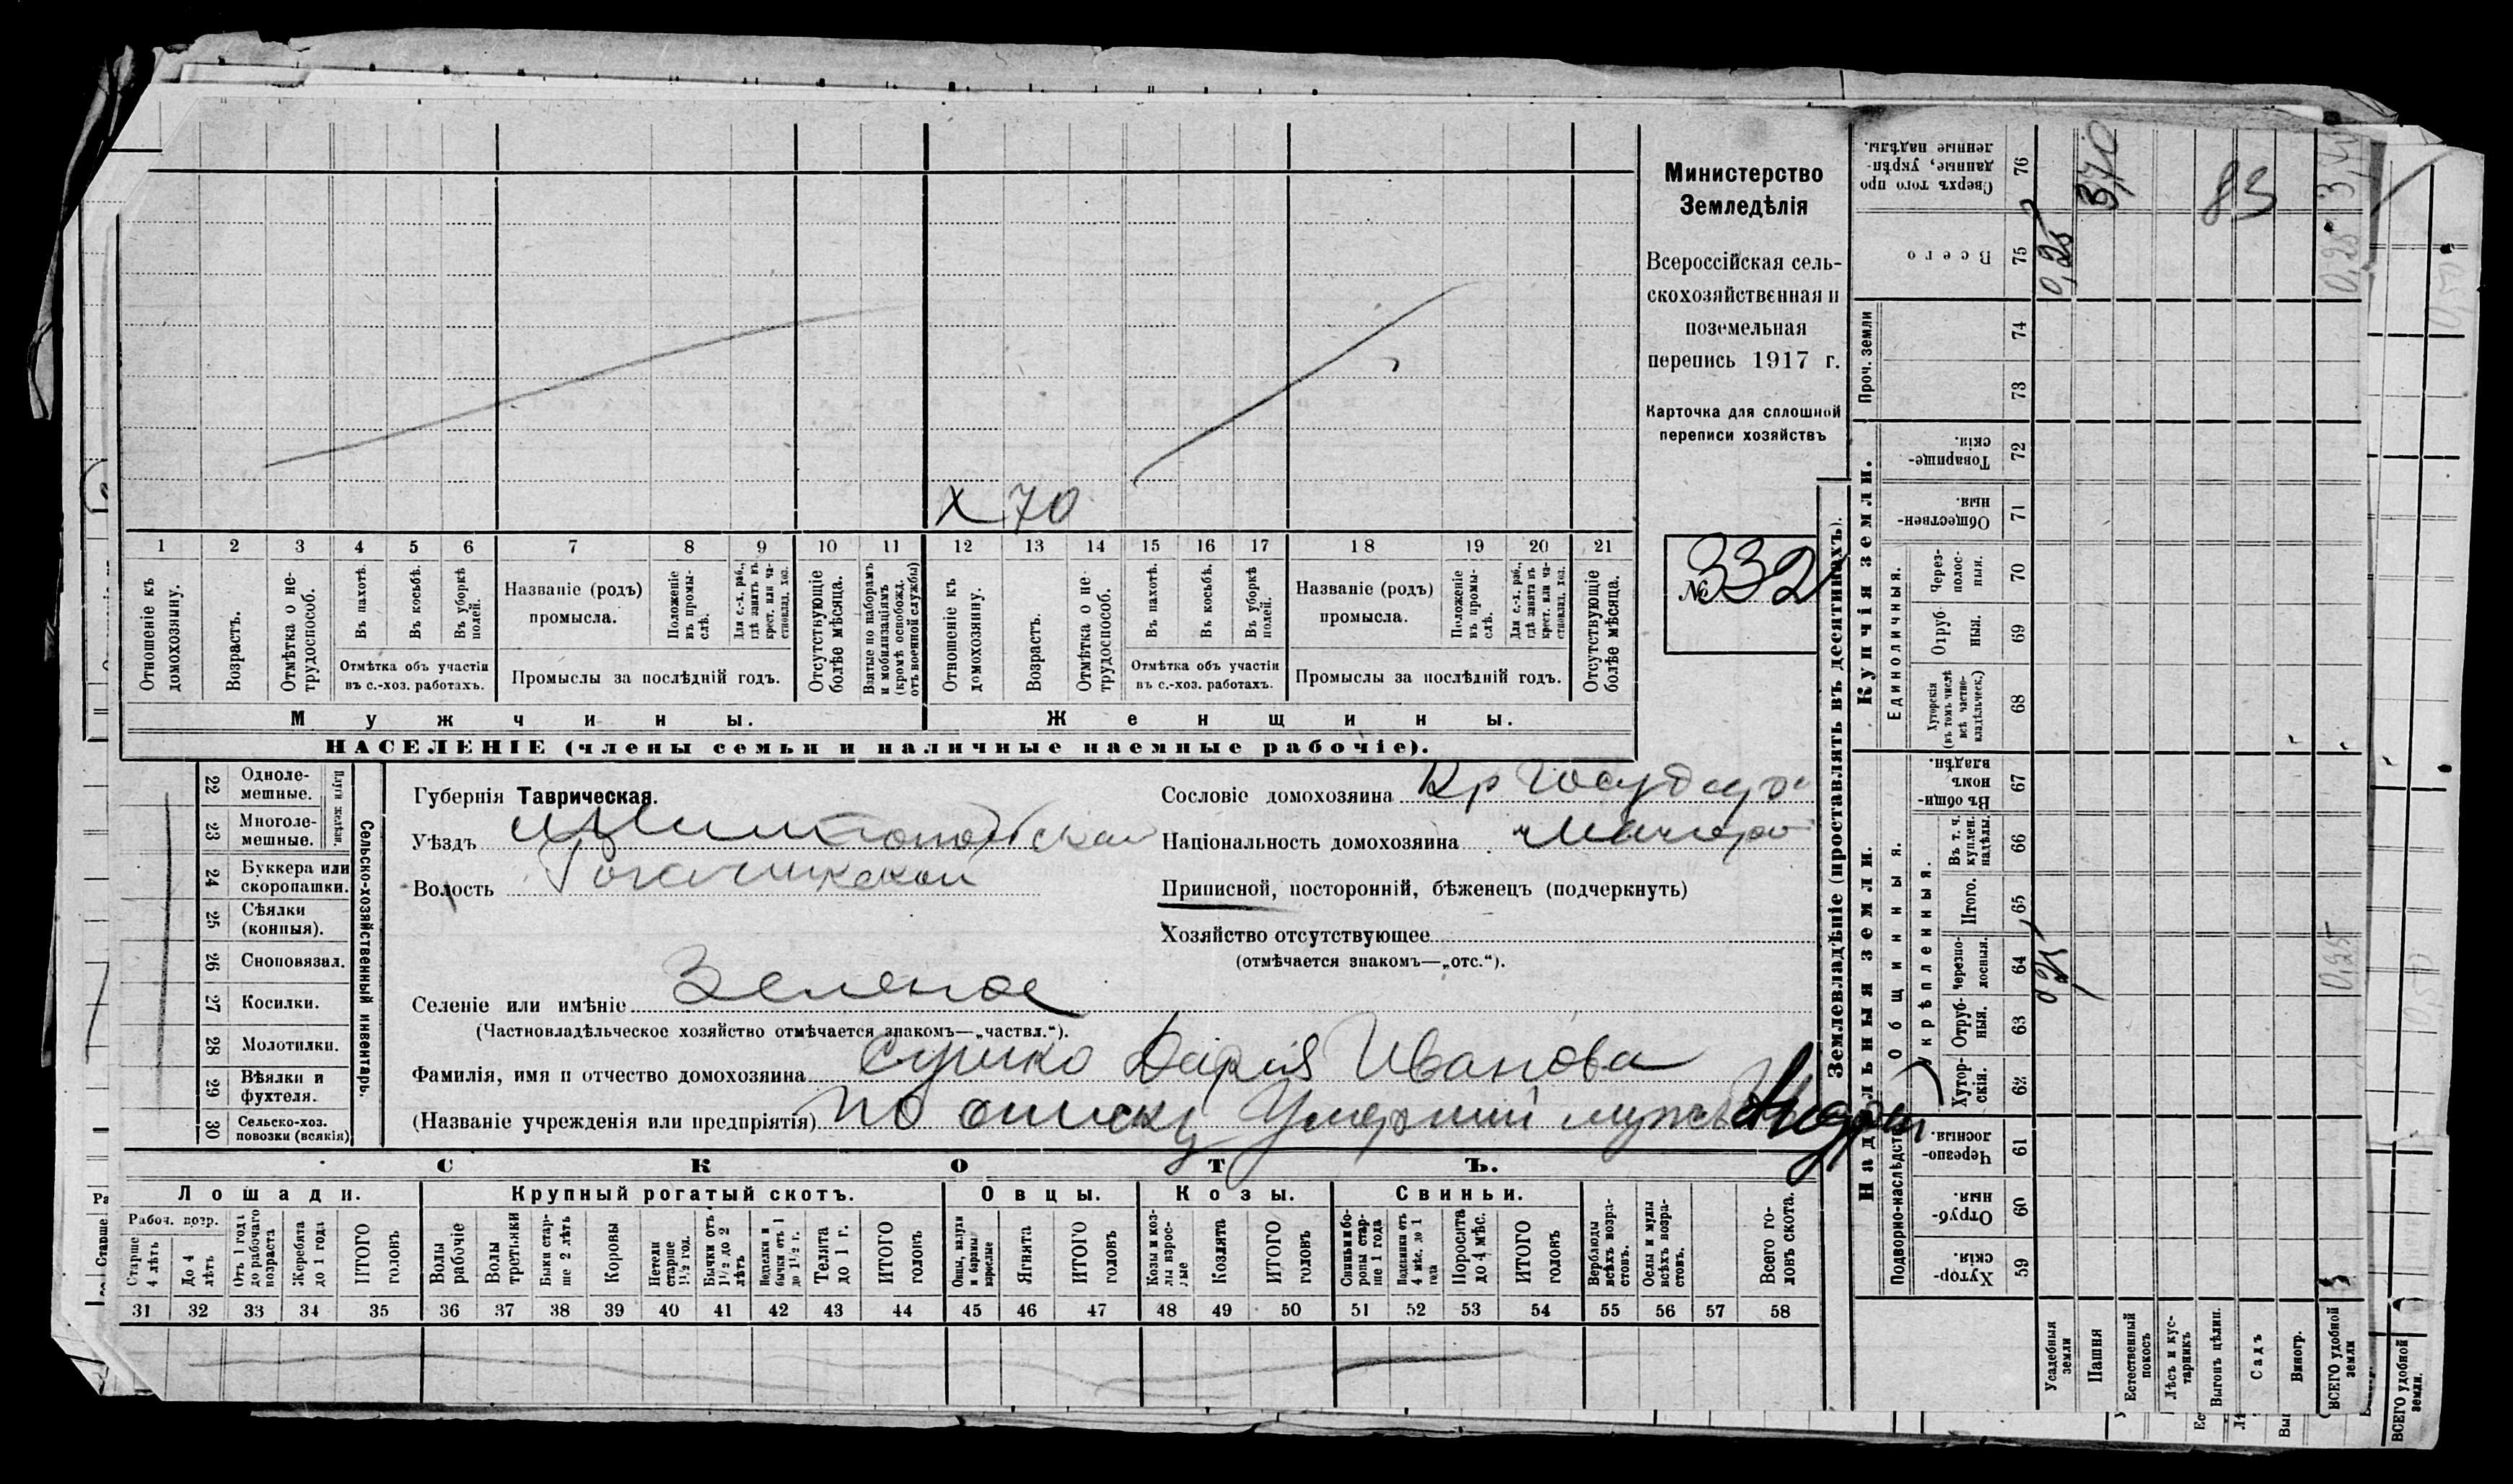 Министерство
Земледѣлія
Всероссійская сель-
скохозяйственная и
поземельная
перепись 1917 г.
Карточка для сплошной
переписи хозяйствъ
№ 332
X 70
1 2 3 4 5 6 7 8 9 10 11 12 13 14 15 16 17 18 19 20 21
Отношеніе къ домохозяину.
Возрастъ.
Отмѣтка о не-трудоспособ.
Въ пахотѣ.
Въ косьбѣ.
Въ уборкѣ полей.
Отмѣтка объ участіи
въ с.-хоз. работахъ.
Названіе (родъ)
промысла.
Положеніе въ промы-слѣ.
Для с.-х. раб., гдѣ занятъ въ крест. или ча-стновлад. хоз.
Промыслы за послѣдній годъ.
Отсутствующіе болѣе мѣсяца.
Взятые по наборамъ и мобилизаціямъ (кромѣ освобожд. отъ военной службы)
Отношеніе къ домохозяину.
Возрастъ.
Отмѣтка о не-трудоспособ.
Въ пахотѣ.
Въ косьбѣ.
Въ уборкѣ полей.
Отмѣтка объ участіи
въ с.-хоз. работахъ.
Названіе (родъ)
промысла.
Положеніе въ промы-слѣ.
Для с.-х. раб., гдѣ занята въ крест. или ча-стновлад. хоз.
Промыслы за послѣдній годъ.
Отсутствующіе болѣе мѣсяца.
Мужчины. Женщины.
НАСЕЛЕНІЕ (члены семьи и наличные наемные рабочіе).
22 Одноле-мешные.
23 Многоле-мешные.
Плуги желѣзн.
24 Буккера или скоропашки.
25 Сѣялки (конныя).
26 Сноповязал.
27 Косилки.
28 Молотилки.
29 Вѣялки и фухтеля.
30 Сельско-хоз. повозки (всякія)
Сельско-хозяйственный инвентарь.
Губернія Таврическая.
Уѣздъ
Волость
Селеніе или имѣніе Зеленое
(Частновладѣльческое хозяйство отмѣчается знакомъ—„частвл.“).
Фамилія, имя и отчество домохозяина Сушко Дарія Иванова
(Названіе учрежденія или предпріятія) по списку Умершій мужъ Андрей
Сословіе домохозяина Кр
Національность домохозяина
Приписной, посторонній, бѣженецъ (подчеркнуть)
Хозяйство отсутствующее
(отмѣчается знакомъ—„отс.“).
СКОТЪ.
Лошади. Крупный рогатый скотъ. Овцы. Козы. Свиньи.
Рабоч. возр.
Старше 4 лѣтъ
До 4 лѣтъ
Отъ 1 года до рабочаго возраста
Жеребята до 1 года
ИТОГО головъ
Волы рабочіе
Волы третьяки
Быки стар-ше 2 лѣтъ
Коровы
Нетели старше 1½ год.
Бычки отъ 1½ до 2 лѣтъ
Нетелки и бычки отъ 1 до 1½ г.
Телята до 1 г.
ИТОГО головъ
Овцы, валухи и бараны взрослые
Ягнята
ИТОГО головъ
Козы и коз-лы взрос-лые
Козлята
ИТОГО головъ
Свиньи и бо-ровы стар-ше 1 года
Подсвинки отъ 4 мѣс. до 1 года
Поросята до 4 мѣс.
ИТОГО головъ
Верблюды всѣхъ возра-стовъ.
Ослы и мулы всѣхъ возра-стовъ.
Всего го-ловъ скота.
31 32 33 34 35 36 37 38 39 40 41 42 43 44 45 46 47 48 49 50 51 52 53 54 55 56 57 58
Землевладѣніе (проставлять въ десятинахъ).
Надѣльныя земли. Купчія земли. Проч. земли
Подворно-наслѣдств
Общинныя.
Укрѣпленныя.
Единоличныя.
Хутор-скія. 59
Отруб-ныя. 60
Черезпо-лосныя. 61
Хутор-скія. 62
Отруб-ныя. 63
Черезпо-лосныя. 64
Итого. 65
Въ т. ч. куплен. надѣлы. 66
Въ общи-номъ владѣн. 67
Хуторскія (въ томъ числѣ всѣ частно-владѣльческ.) 68
Отруб-ныя. 69
Через-полос-ныя. 70
Обществен-ныя. 71
Товарище-скія. 72
73
74
Всего 75
Сверхъ того про-данные, укрѣп-ленные надѣлы. 76
Усадебныя земли 0,25 0,25
Пашня 3,70
Естественный покосъ
Лѣсъ и кус-тарникъ
Выгонъ цѣлин.
Садъ
Виногр.
ВСЕГО удобной земли 0,25 0,25
83
ВСЕГО удобной земли.